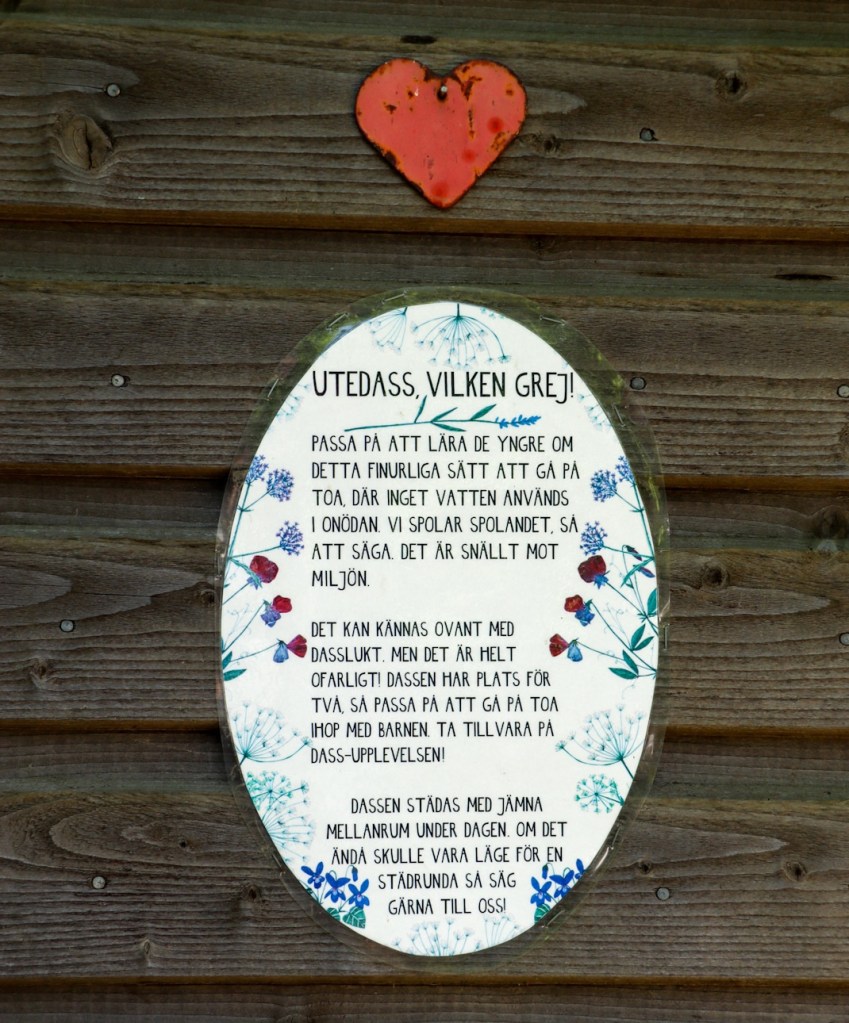 UTEDASS, VILKEN GREJ!
PASSA PÅ ATT LÄRA DE YNGRE OM
DETTA FINURLIGA SÄTT ATT GÅ PÅ
TOA, DÄR INGET VATTEN ANVÄNDS
I ONÖDAN. VI SPOLAR SPOLANDET, SÅ
ATT SÄGA. DET ÄR SNÄLLT MOT
MILJÖN.
DET KAN KÄNNAS OVANT MED
DASSLUKT. MEN DET ÄR HELT
OFARLIGT! DASSEN HAR PLATS FÖR
TVÅ, SÅ PASSA PÅ ATT GÅ PÅ TOA
IHOP MED BARNEN. TA TILLVARA PÅ
DASS-UPPLEVELSEN!
DASSEN STÄDAS MED JÄMNA
MELLANRUM UNDER DAGEN. OM DET
ÄNDÅ SKULLE VARA LÄGE FÖR EN
STÄDRUNDA SÅ SÄG
GÄRNA TILL OSS!